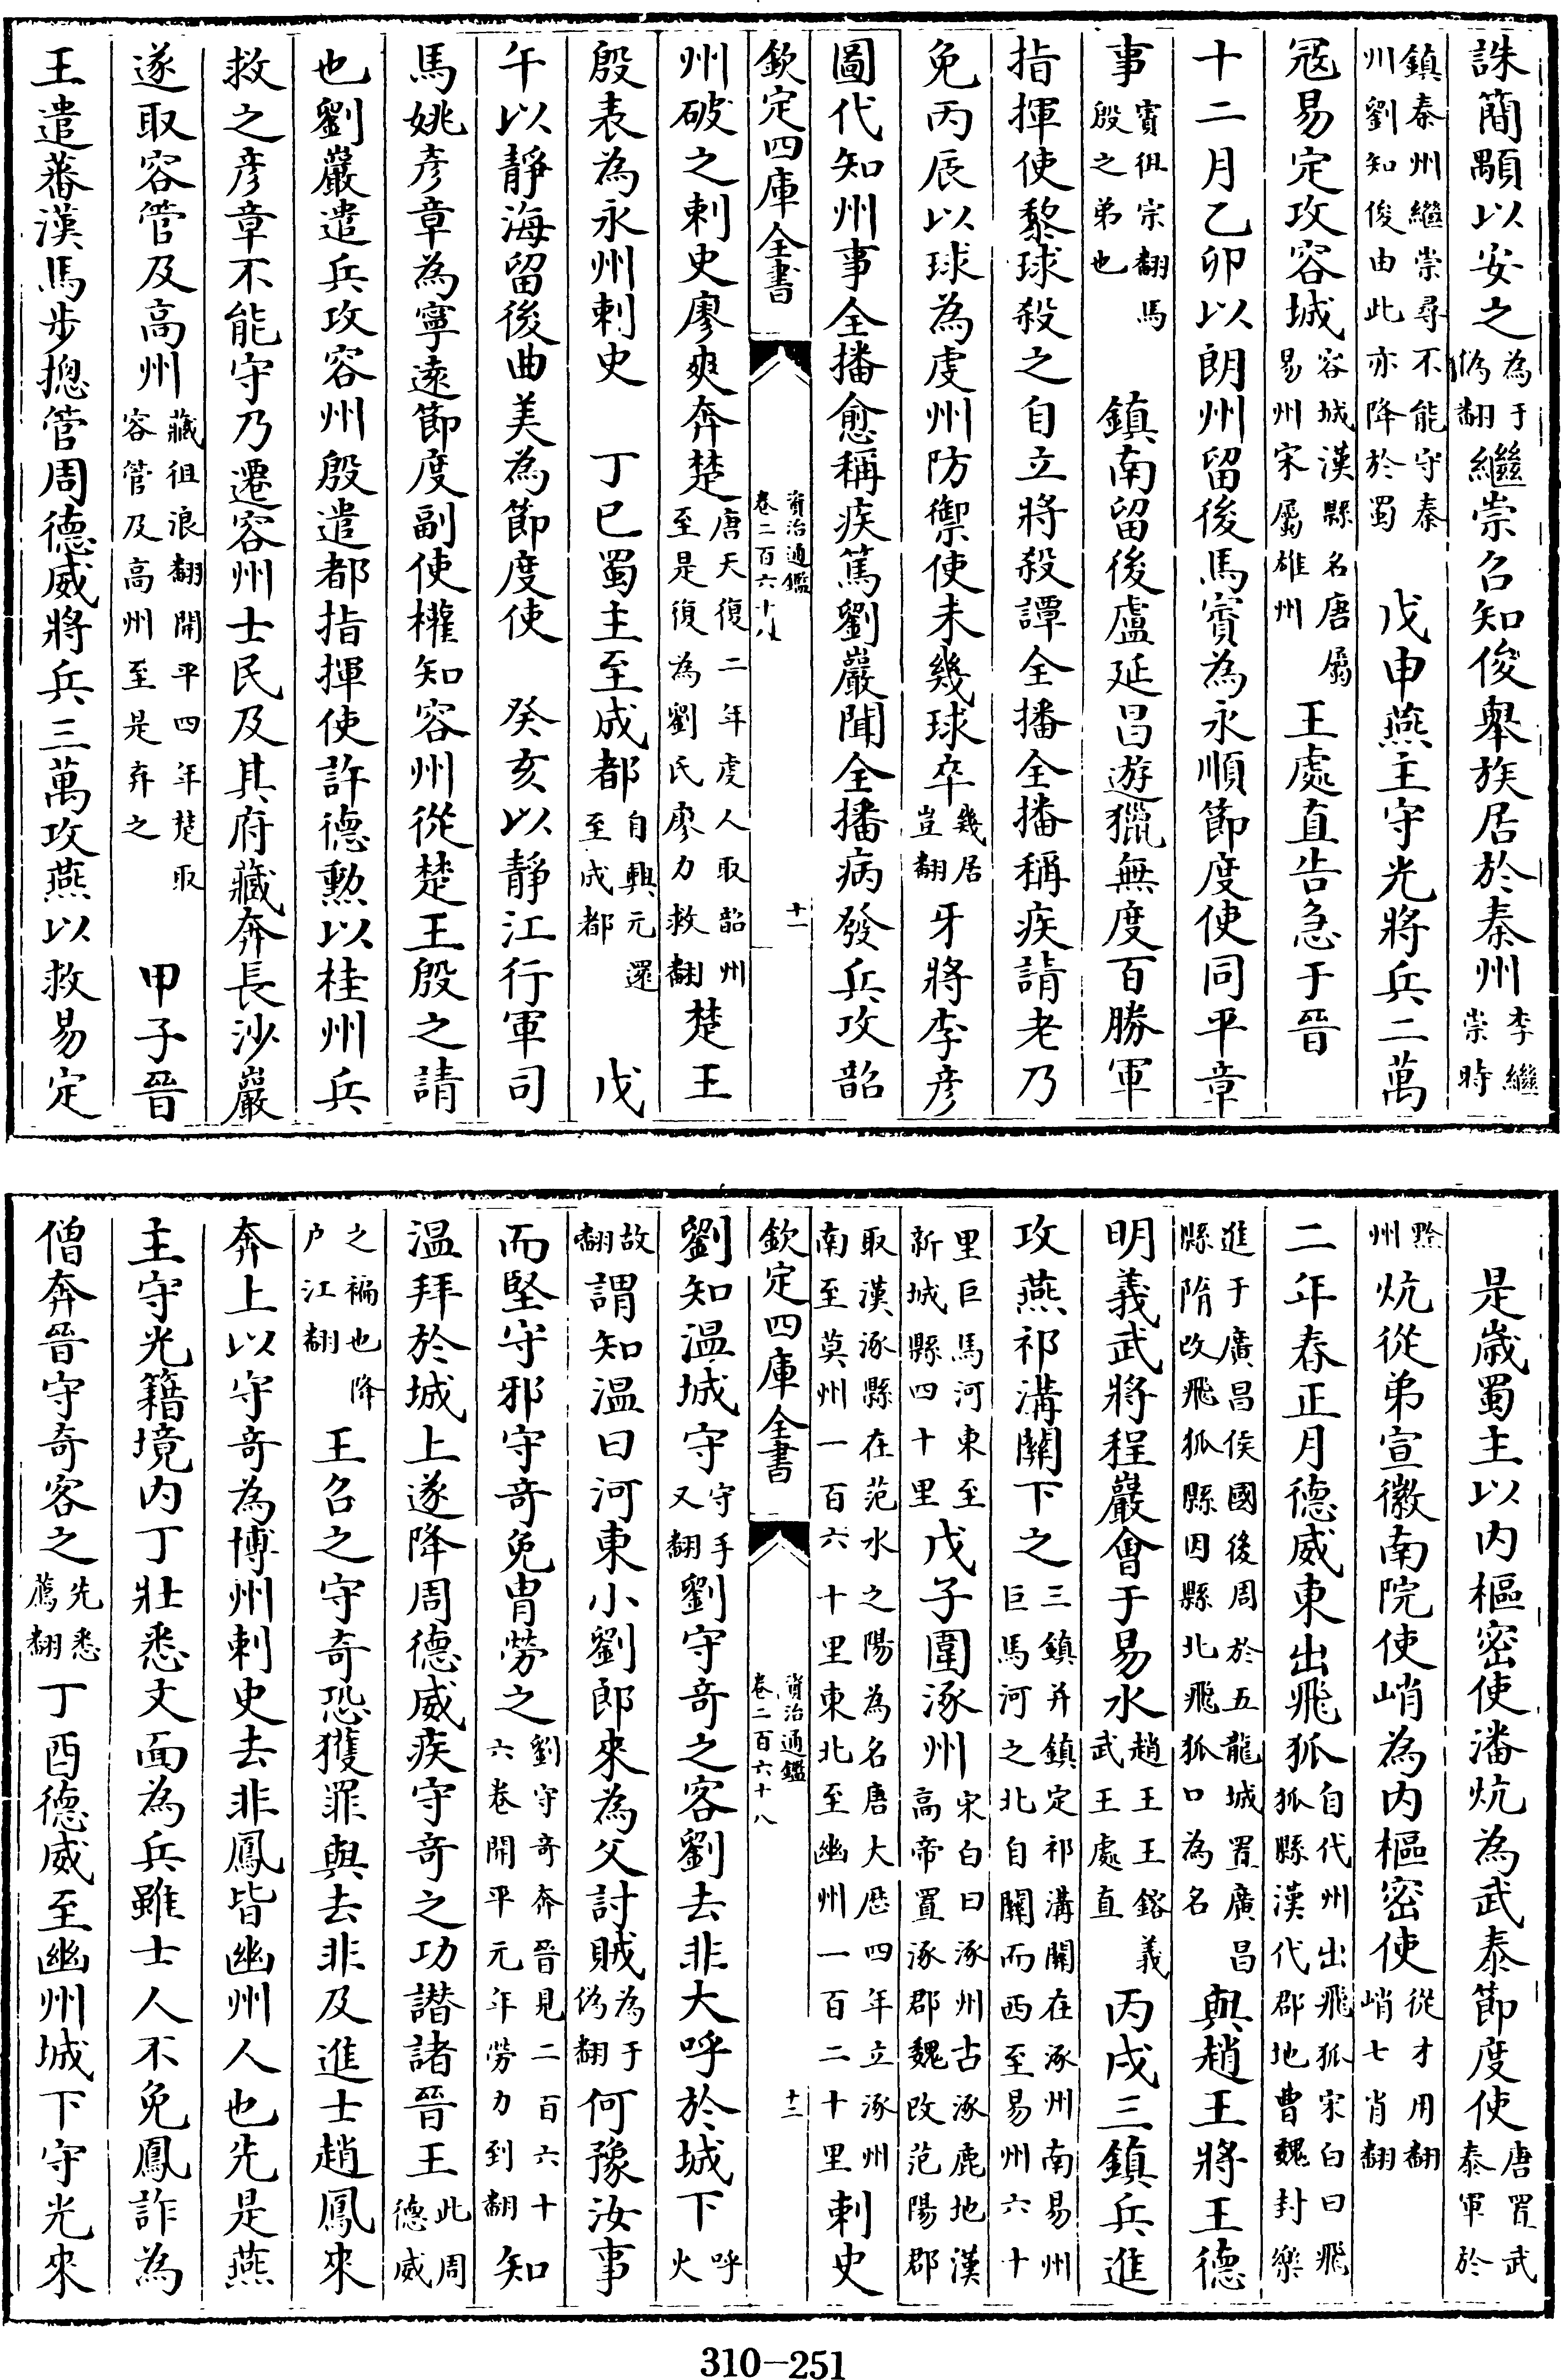 誅簡顒以安之為于偽翻繼崇召知俊舉族居於秦州李繼崇時
鎮秦州繼崇尋不能守秦州劉知俊由此亦降於蜀 戊申燕主守光將兵二萬
冦易定攻容城容城漢縣名唐屬易州宋屬雄州王處直告急于晉
十二月乙卯以朗州留後馬賨為永順節度使同平章
事賨徂宗翻馬殷之弟也 鎮南留後盧延昌遊獵無度百勝軍
指揮使黎球殺之自立將殺譚全播全播稱疾請老乃
免丙辰以球為虔州防禦使未幾球卒幾居豈翻牙將李彦
圖代知州事全播愈稱疾篤劉巖聞全播病發兵攻韶
欽定四庫全書 資治通鑑卷二百六十八 十一
州破之刺史廖爽奔楚唐天復二年虔人取韶州至是復為劉氏廖力救翻楚王
殷表為永州刺史 丁巳蜀主至成都自興元還至成都 戊
午以靜海留後曲美為節度使 癸亥以靜江行軍司
馬姚彦章為寧遠節度副使權知容州從楚王殷之請
也劉巖遣兵攻容州殷遣都指揮使許德勲以桂州兵
救之彦章不能守乃遷容州士民及其府藏奔長沙巖
遂取容管及高州藏徂浪翻開平四年楚取容管及高州至是弃之 甲子晉
王遣蕃漢馬步揔管周德威將兵三萬攻燕以救易定
是歲蜀主以内樞密使潘炕為武泰節度使唐置武泰軍於
黔州炕從弟宣徽南院使峭為内樞密使從才用翻峭七肖翻
二年春正月德威東出飛狐自代州出飛狐宋白曰飛狐縣漢代郡地曹魏封樂
進于廣昌侯國後周於五龍城置廣昌縣隋改飛狐縣因縣北飛狐口為名與趙王將王德
明義武將程巖會于易水趙王王鎔義武王處直 丙戌三鎮兵進
攻燕祁溝關下之三鎮并鎮定祁溝關在涿州南易州巨馬河之北自關而西至易州六十
里巨馬河東至新城縣四十里戊子圍涿州宋白曰涿州古涿鹿地漢高帝置涿郡魏改范陽郡
取漢涿縣在范水之陽為名唐大厯四年立涿州南至莫州一百六十里東北至幽州一百二十里刺史
欽定四庫全書 資治通鑑卷二百六十八 十二
劉知温城守守手又翻劉守奇之客劉去非大呼於城下呼火
故翻謂知温曰河東小劉郎來為父討賊為于偽翻何豫汝事
而堅守邪守奇免胄勞之劉守奇奔晉見二百六十六卷開平元年勞力到翻知
温拜於城上遂降周德威疾守奇之功譖諸晉王此周德威
之褊也降户江翻王召之守奇恐獲罪與去非及進士趙鳳來
奔上以守奇為博州刺史去非鳳皆幽州人也先是燕
主守光籍境内丁壯悉文面為兵雖士人不免鳳詐為
僧奔晉守奇客之先悉薦翻丁酉德威至幽州城下守光來
310-251